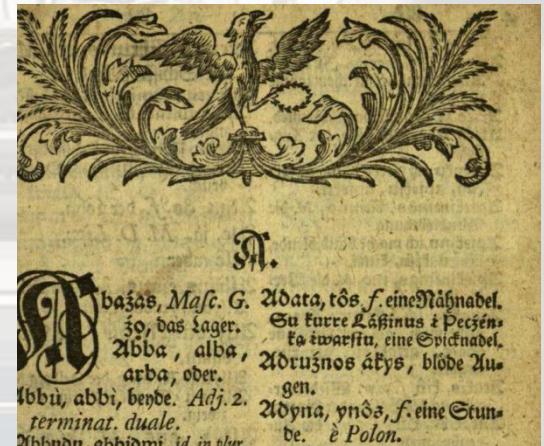 A.
Abaźas, Masc. G.
źo, das Lager.
Abba, alba,
arba, oder.
Abbù, abbi, beyde. Adj. 2.
terminat. duale.
Abbudu, abbidwi, id. in plur.
Adata, tôs f. eine Nähnadel.
Su kurre Láßinus i Peczén-
ka iwarstu, eine Spicknadel.
Adruźnos ákys, blöde Au-
gen.
Adyna, ynôs, f. eine Stun-
de. è Polon.